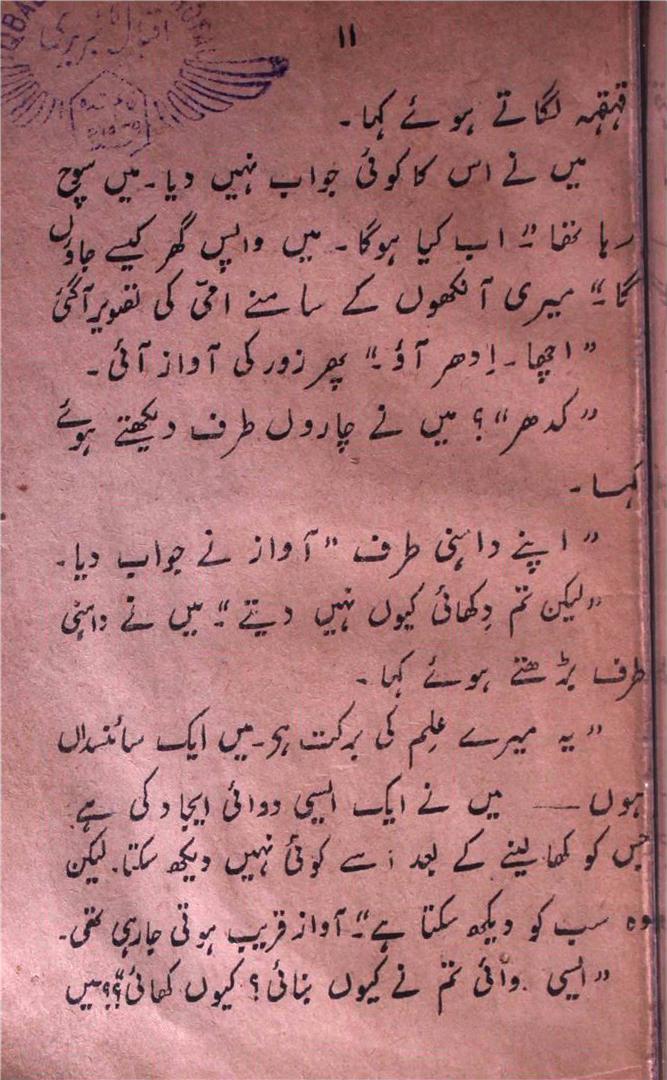 ۱۱
قہقہہ لگاتے ہوئے کہا۔
میں نے اس کا کوئی جواب نہیں دیا۔ میں سوچ
رہا تھا "اب کیا ہوگا۔ میں واپس گھر کیسے جاؤں
گا۔" میری آنکھوں کے سامنے امّی کی تصویر آگئی
"اچھا۔ اِدھر آؤ۔" پھر زور کی آواز آئی۔
"کدھر"؟ میں نے چاروں طرف دیکھتے ہوئے
کہا۔
"اپنے داہنی طرف" آواز نے جواب دیا۔
"لیکن تم دِکھائی کیوں نہیں دیتے"۔ میں نے داہنی
طرف بڑھتے ہوئے کہا۔
"یہ میرے عِلم کی برکت ہے۔ میں ایک سائنسداں
ہوں — میں نے ایک ایسی دوائی ایجاد کی ہے
جس کو کھا لینے کے بعد اُسے کوئی نہیں دیکھ سکتا۔ لیکن
وہ سب کو دیکھ سکتا ہے"۔ آواز قریب ہوتی جارہی تھی۔
"ایسی دوائی تم نے کیوں بنائی؟ کیوں کھائی؟" میں